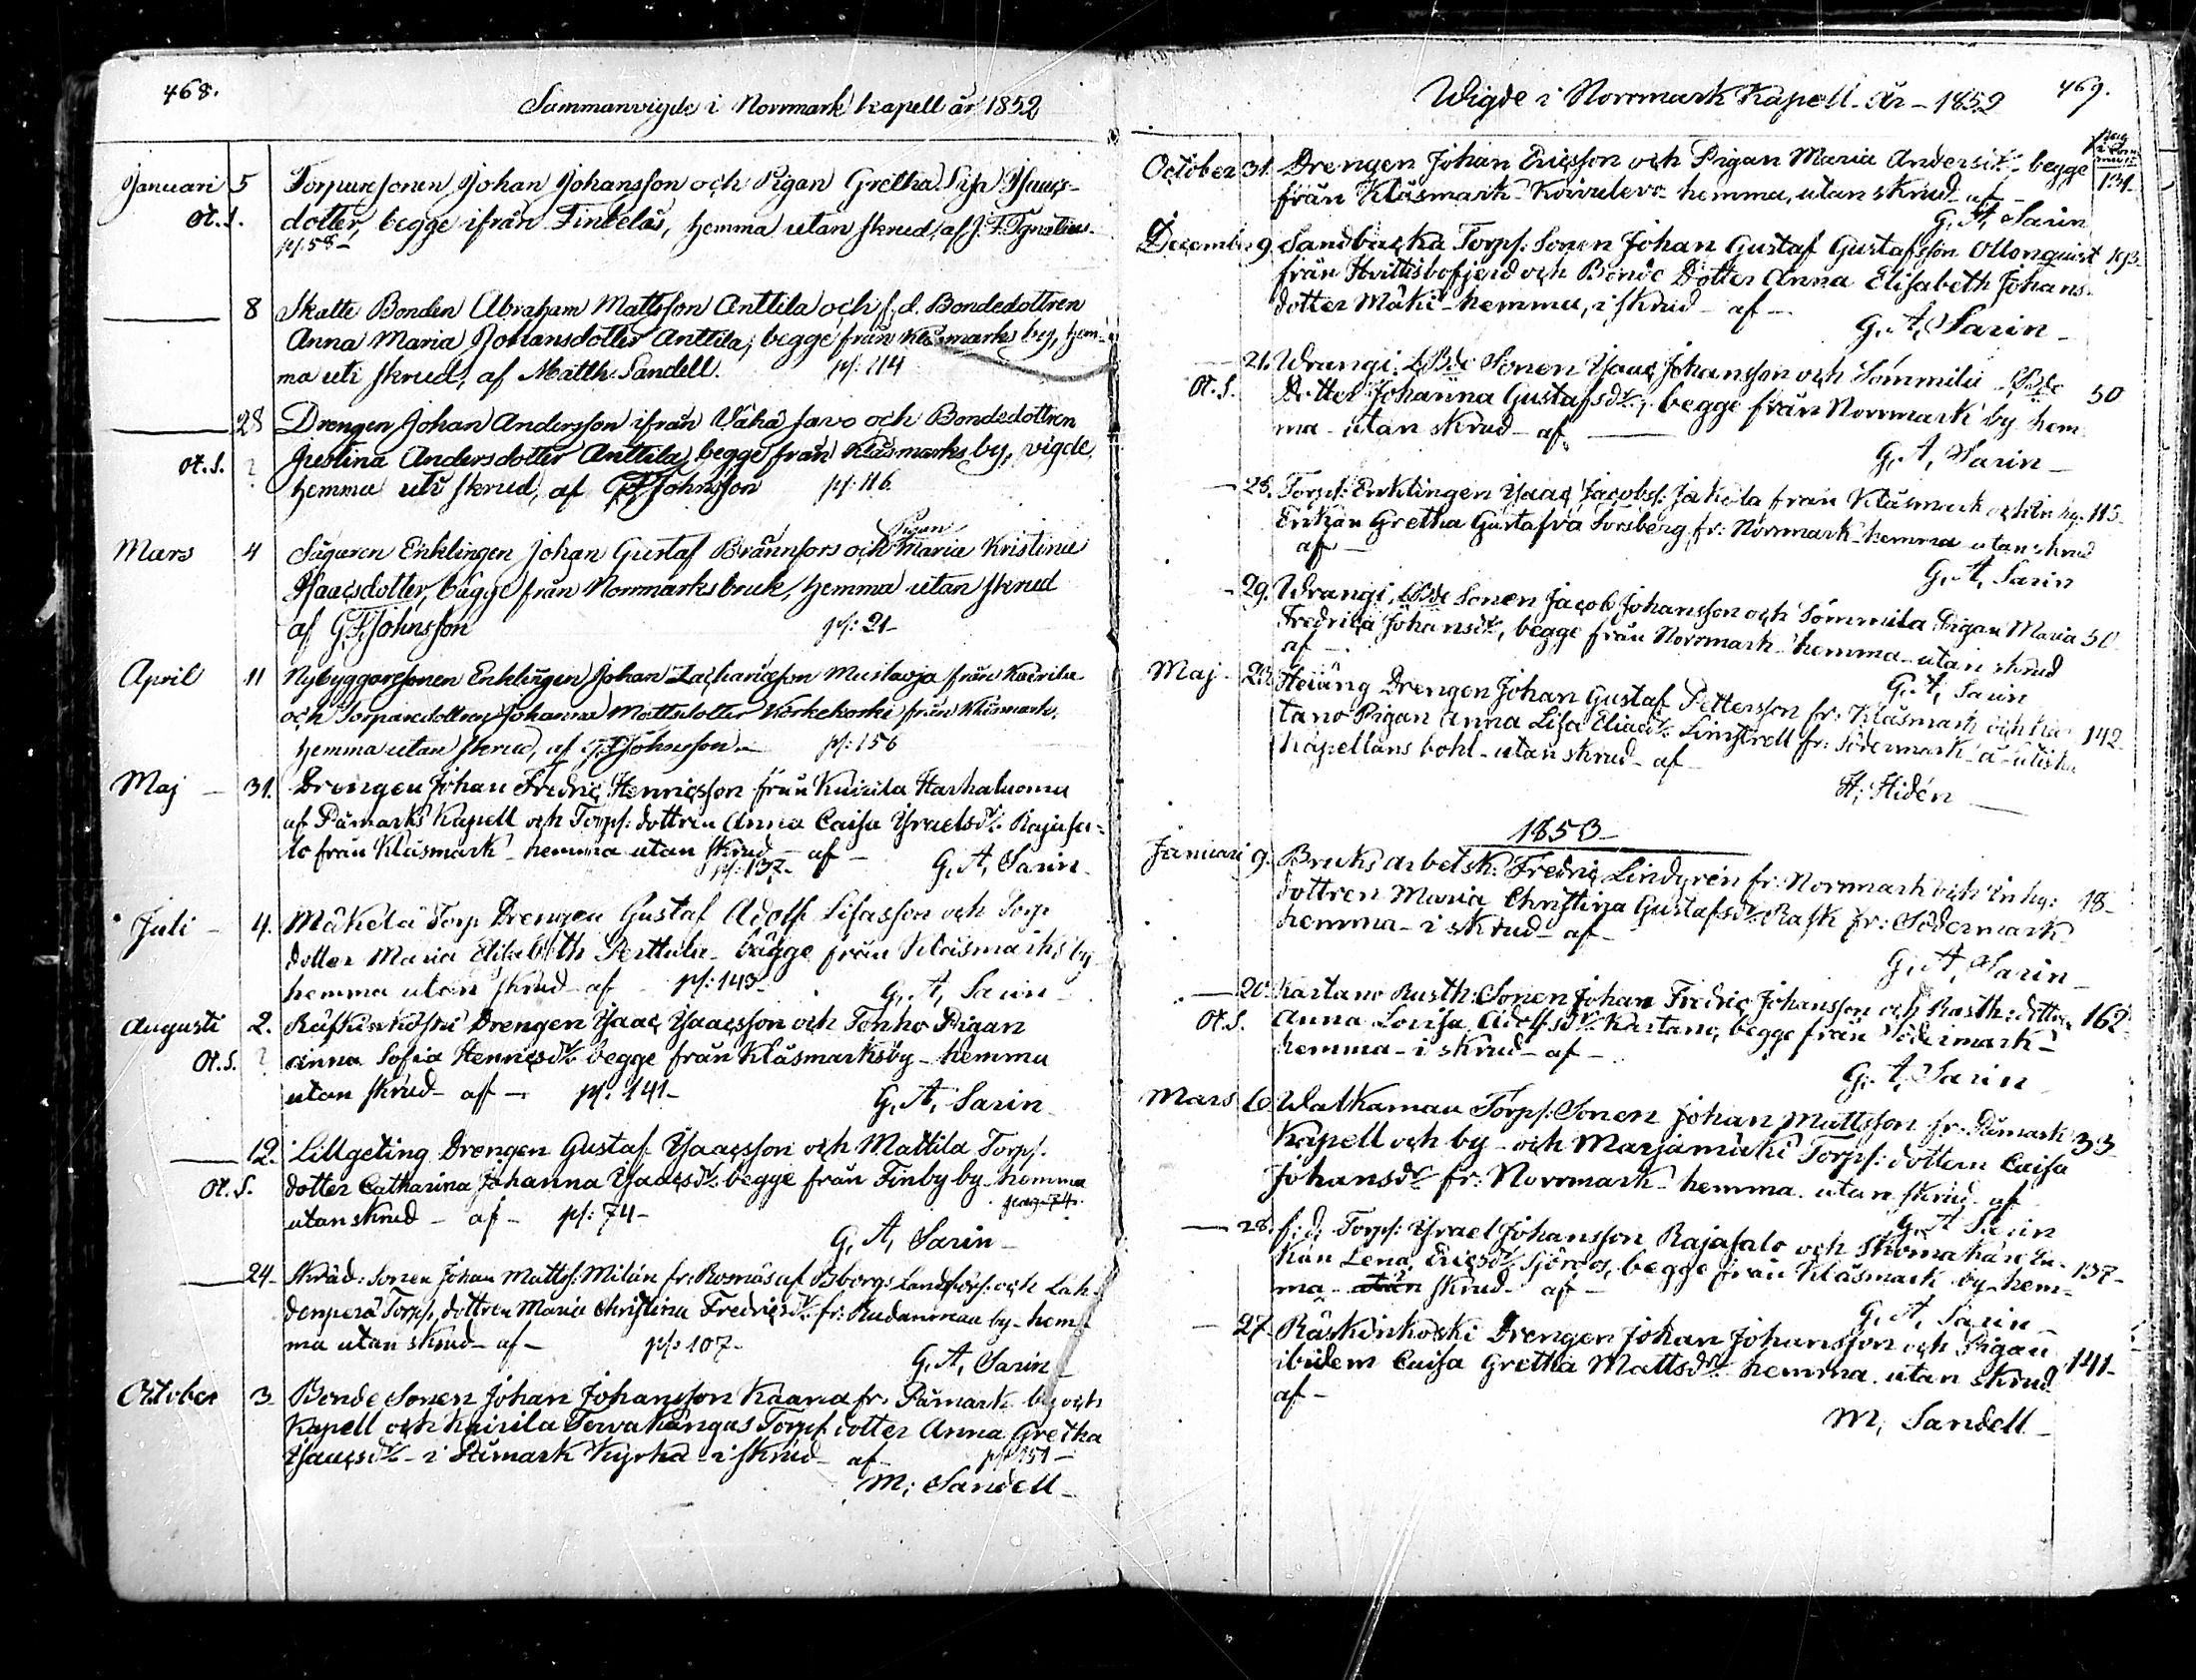 468.
Sammanvigde i Norrmark kapell år 1852
Januari 5 Torparesonen Johan Johansson och Pigan Gretha Lisa Isaacs-
ot. S. dotter, begge ifrån Finbelås, hemma utan skrud, af J. F. Ignatius.
p/:58-
8 Skatte Bonden Abraham Mattsson Anttila och f. d. Bondedottren
Anna Maria Johansdotter Anttila, begge från Klåsmarks by, hem-
ma uti skrud, af Matth: Sandell. p/: 114
28 Drengen Johan Andersson ifrån Vähä Savo och Bondedottren
ot. S. ? Justina Andersdotter Anttila, begge från Klåsmarks by, vigde
hemma uti skrud, af G F Johnsson p/: 116
Pigan
Mars 4 Sågaren Enklingen Johan Gustaf Brännfors och Maria Kristina
Isaacsdotter, bägge från Norrmarks bruk, hemma utan skrud
af G. F. Johnsson p/: 21-
April 11 Nybyggaresonen Enklingen Johan Zachariæson Mustaoja från Kairila
och Torparedottren Johanna Mattsdotter Kerkekoski från Klåsmark,
hemma utan skrud, af G. F. Johnsson- p/: 156
Maj - 31. Drengen Johan Fredric Henricsson från Kairila Harhaluoma
af Påmarks Kapell och Torps: dottren Anna Caisa Israelsdr. Rajasa-
lo från Klåsmark - hemma utan skrud - af -
p/: 137- G, A, Sarin-
Juli - 4. Mäkelä Torp Drengen Gustaf Adolf Lisasson och Torp
dotter Maria Elisabeth Perttula - bägge från Klåsmarks by
hemma utan skrud - af - p/: 143-
G, A, Sarin-
Augusti 2. Räfkinkoski Drengen Isaac Isaacsson och Tonko Pigan
ot. S. ? Anna Sofia Henricsdr. begge från Klåsmarks by - hemma
utan skrud - af - p/. 141-
G, A, Sarin
12. Lillgeting Drengen Gustaf Isaacsson och Mattila Torps.
ot. S. dotter Catharina Johanna Isaacsdr. begge från Finby by - hemma
utan skrud - af - p/: 74-
G, A, Sarin-
24- Skräd: Sonen Johan Matts: Milán fr: Rosnäs af Bborgs Landsförs: och Lah-
denperä Torps, dottren Maria Christina Fredricsdr. fr: Rudanmaa by - hem-
ma utan skrud - af - p/: 107-
G. A, Sarin-
October 3- Bonde Sonen Johan Johansson Kaana fr. Påmark by och
Kapell och Kairila Tervakangas Torps dotter Anna Gretha
Isaacsdr. - i Påmark Kyrka - i skrud - af - p/: 151-
M; Sandell-
Wigde i Norrmark Kapell - År - 1852 469.
October 31. Drengen Johan Ericsson och Pigan Maria Andersdr. - begge 131-
från Klåsmark - Koivulevo - hemma, utan skrud - af -
G, A, Sarin
December 9. Sandbacka Torps: Sonen Johan Gustaf Gustafsson Ollonquist 193-
från Hvittisbofjerd och Bonde Dotter Anna Elisabeth Johans-
dotter Mäki - hemma, i skrud - af -
G. A, Sarin-
21. Wrangi, LBde Sonen Isaac Johansson och Sömmilä LBde
ot. S. Dotter Johanna Gustafsdr., begge från Norrmark by hem- 50
ma - utan skrud - af
G, A, Sarin-
28. Torps: Enklingen Isaac Jacobs: Jakola från Klåsmark och inhy: 115-
Enkan Gretha Gustafva Forsberg fr: Norrmark - hemma utan skrud
af -
G. A, Sarin
29. Wrangi, LBde Sonen Jacob Johansson och Sömmilä Pigan Maria 50-
Fredrica Johansdr., begge från Norrmark - hemma - utan skrud
af -
G. A, Sarin
Maj - Heiäng Drengen Johan Gustaf Pettersson fr: Klåsmark och Kas-
tano Pigan Anna Lisa Eliaedr. fr: Södermark - 142-
Kapellans bohl - utan skrud - af -
H; Hidén
1853-
Januari 9. Bruks arbetsk: Fredric Lindgrén fr: Norrmark och inhy: 18-
dottren Maria Christina Gustafsdr. Rask fr: Södermark
hemma - i skrud - af -
G. A, Sarin-
20. Kastano Rusth: Sonen Johan Fredric Johansson och Rusth: dotter 162-
ot. S. Anna Lovisa Adolfsdr. Kastano, begge från Södermark -
hemma - i skrud - af -
G, A, Sarin
Mars 6. Walkaman Torps: Sonen Johan Mattsson fr: Påmark 33-
Kapell och by - och Marjamäki Torps: dottern Caisa
Johansdr. fr: Norrmark - hemma - utan skrud - af
G. A Sarin
28. f: d: Torps: Israel Johansson Rajasalo och Skomakare En-
kan Lena Ericsdr. Sjöroos, begge från Klåsmark by - hem- 137-
ma - utan skrud - af -
G. A, Sarin-
27. Räskinkoski Drengen Johan Johansson och Pigan
ibidem Caisa Gretha Mattsdr. hemma - utan skrud 141-
af -
M, Sandell-